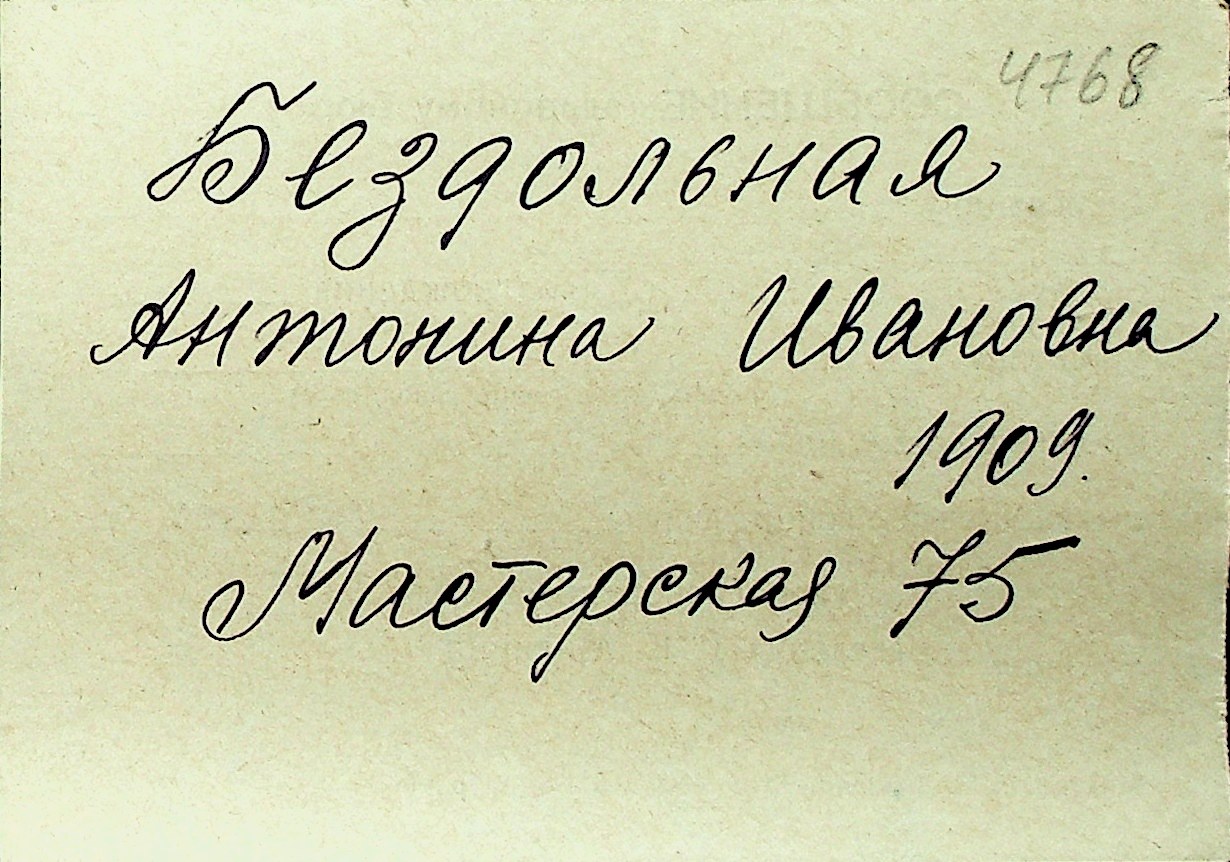 4768
Бездольная
Антонина Ивановна
1909.
Мастерская 75